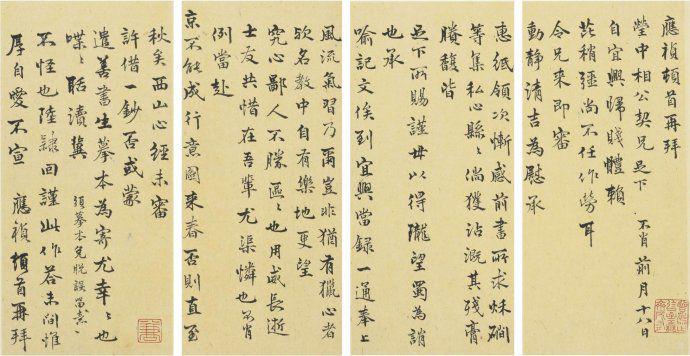 應禎頓首再拜
瑩中相公契兄足下 不肖前月十八日
自宜興歸賤體賴
芘稍彊尚不任作勞耳
令兄來即審
動靜清吉為慰承
惠紙領次慚感前書所求秌磵
等集私心縣〻倘獲沾溉其殘膏
賸馥皆
足下所賜謹毋以得隴望蜀為誚
也承
喻記文俟到宜興當録一通奉上
風流氣習乃爾豈非猶有獵心者
欤名教中自有樂地更望
究心鄙人不勝區〻也用威長逝
士友共惜在吾輩尤 憐也不肖
例當赴
京不能成行意圖來春否則直至
秋矣西山心經未審
許借一鈔否或蒙
遣善書生摹本為寄尤幸〻〻也
喋〻聒瀆冀 須摹本免脫誤留意〻
不怪也陸隸回謹此作答未間惟
厚自愛不宣 應禎頓首再拜